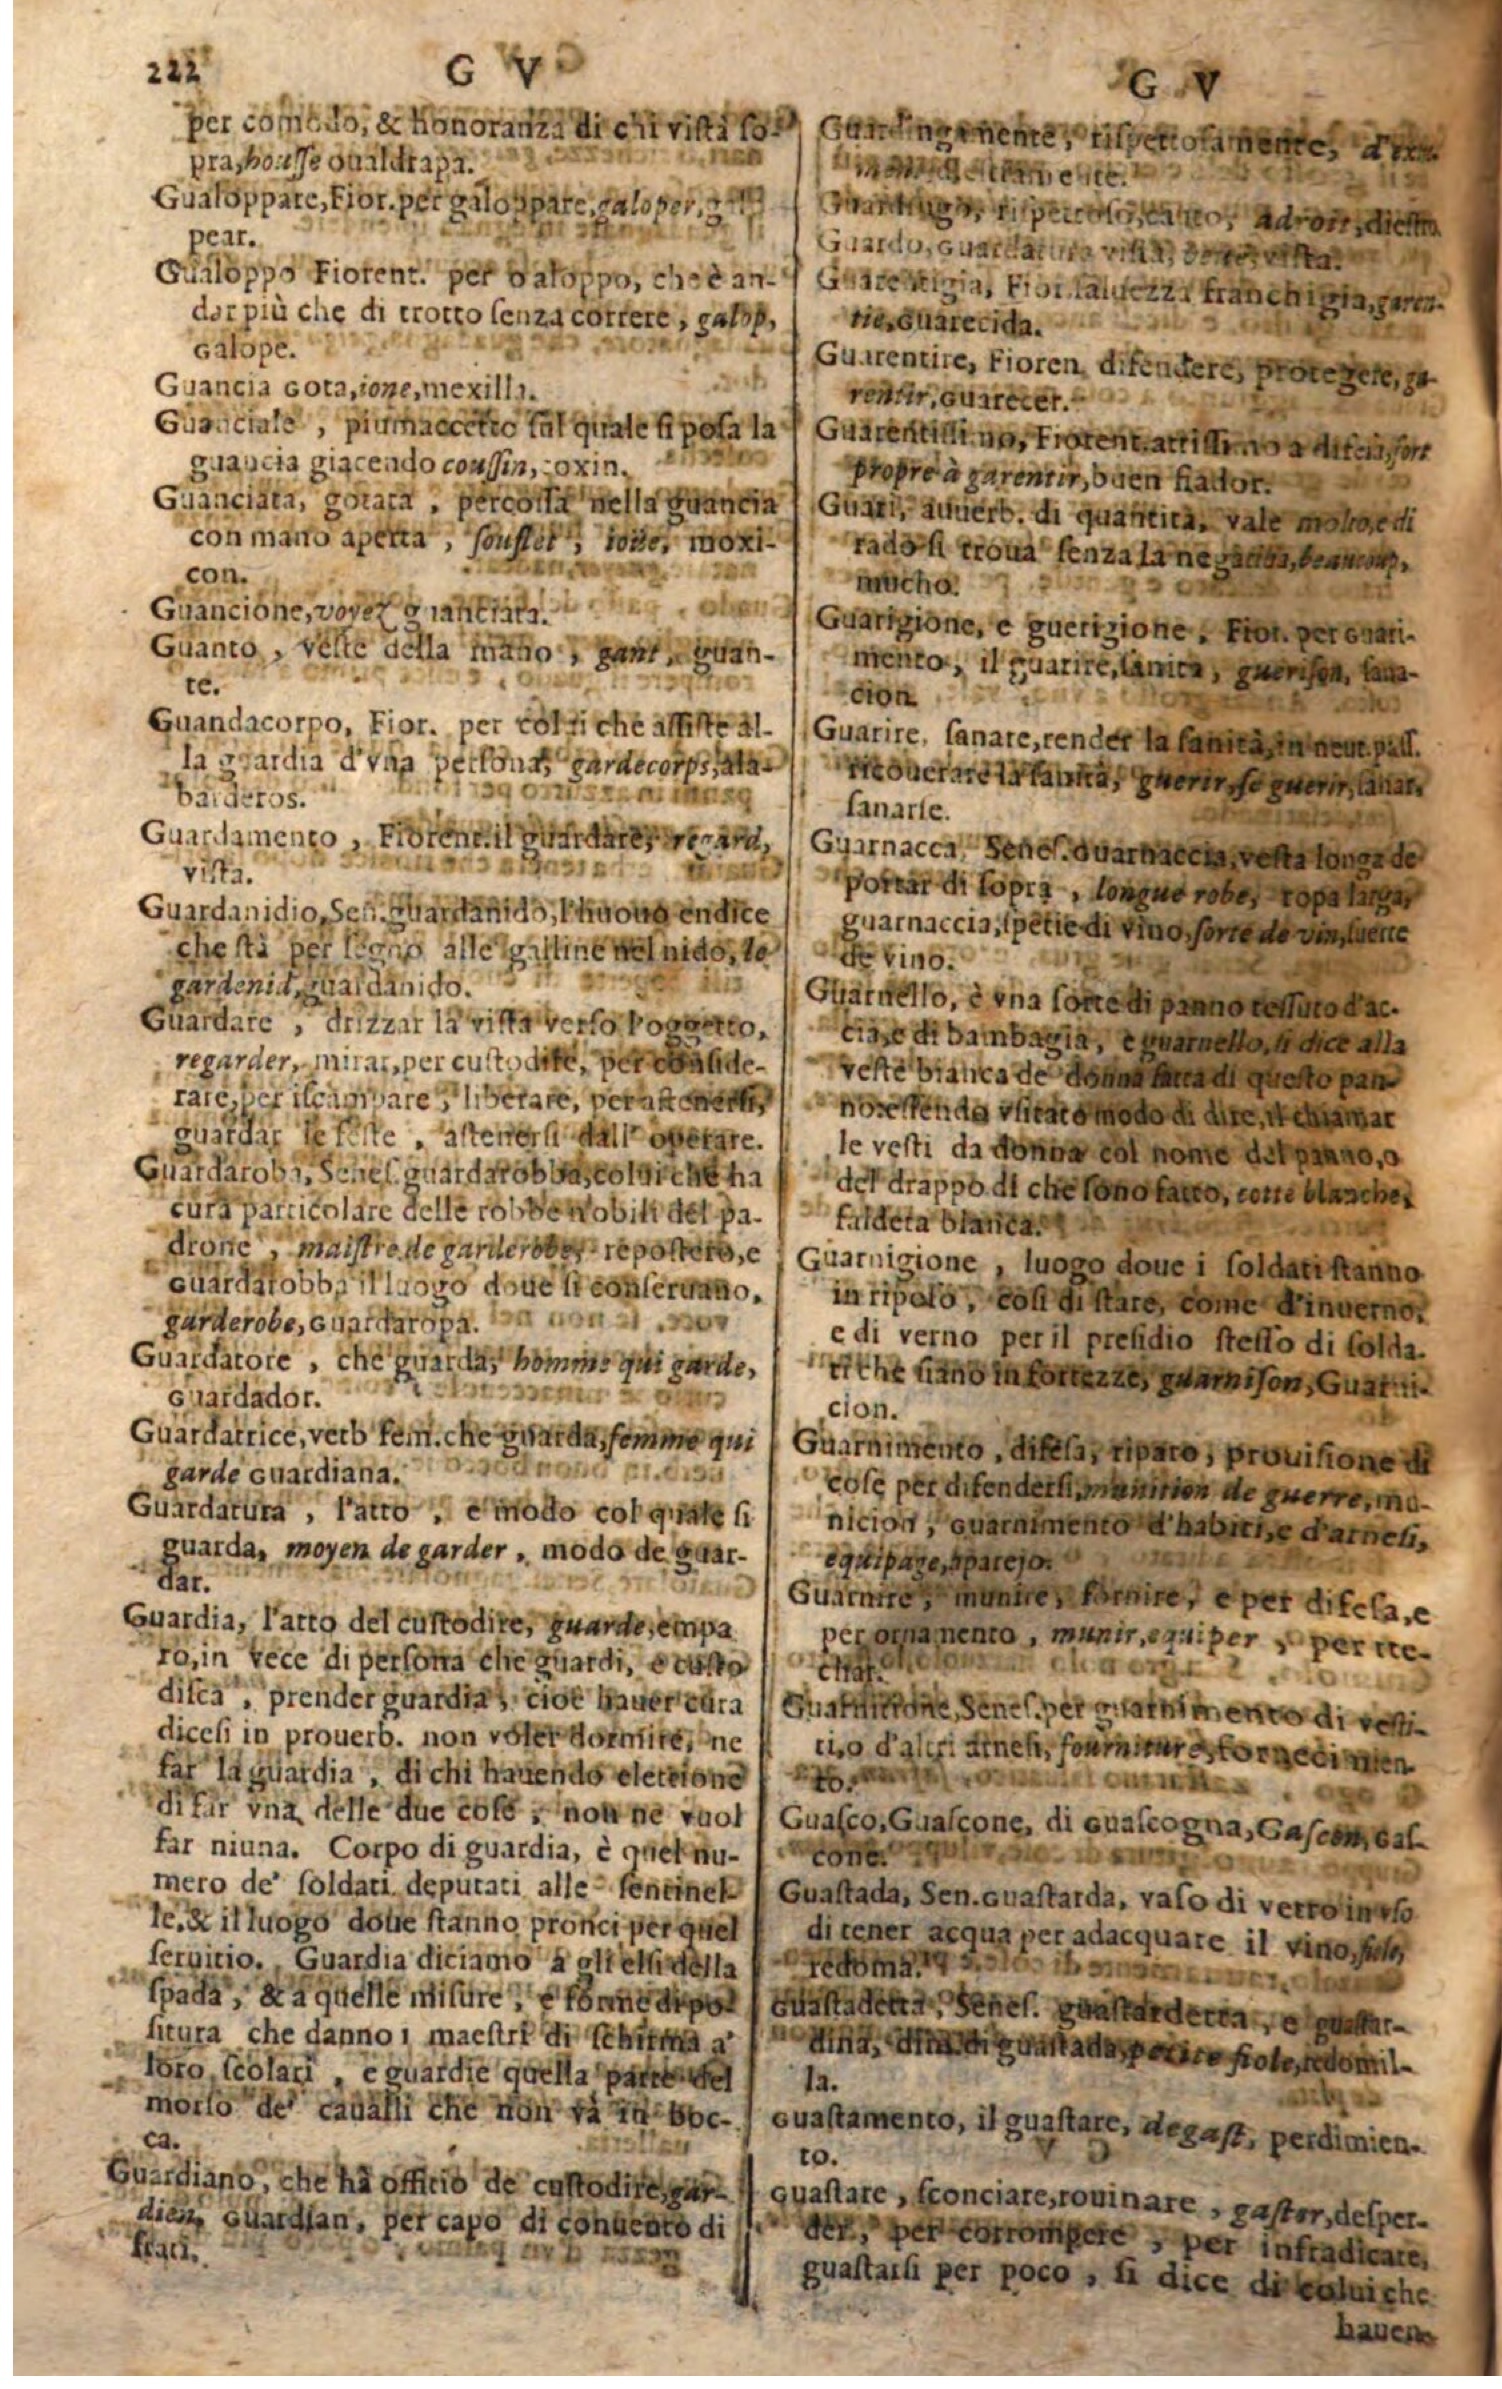 222
G V
per comodo, & honoranza di chi vista so-
pra, housse oualdrapa.
Gualoppare, Fior. per galoppare, galoper, 
pear.
Gualoppo Fiorent. per galoppo, che è an-
dar più che di trotto senza correre, galop,
Galope.
Guancia Gota, ione, mexilla.
Guanciale, piumaccetto sul quale si posa la
guancia giacendo coussin, coxin.
Guanciata, gotata, percossa nella guancia
con mano aperta, soufflet, ioue, moxi-
con.
Guancione, voyez guanciata.
Guanto, veste della mano, gant, guan-
te.
Guandacorpo, Fior. per colui che assiste al-
la guardia d'vna persona, gardecorps, ala-
barderos.
Guardamento, Fiorent. il guardare, regard,
vista.
Guardanidio, Sen. guardanido, l'huouo endice
che stà per segno alle galline nel nido, le
gardenid, guardanido.
Guardare, drizzar la vista verso l'oggetto,
regarder, mirar, per custodire, per conside-
rare, per iscampare, liberare, per astenersi,
guardar le feste, astenersi dall' operare.
Guardaroba, Senes. guardarobba, colui che ha
cura particolare delle robbe nobili del pa-
drone, maistre de garderobe, repostero, e
Guardarobba il luogo doue si conseruano,
garderobe, Guardaropa.
Guardatore, che guarda, homme qui garde,
Guardador.
Guardatrice, verb fem. che guarda, femme qui
garde Guardiana.
Guardatura, l'atto, e modo col quale si
guarda, moyen de garder, modo de guar-
dar.
Guardia, l'atto del custodire, guarde, empa
ro, in vece di persona che guardi, e custo
disca, prender guardia, cioè hauer cura
dicesi in prouerb. non voler dormire, ne
far la guardia, di chi hauendo elettione
di far vna delle due cose, non ne vuol
far niuna. Corpo di guardia, è quel nu-
mero de' soldati deputati alle sentinel-
le, & il luogo doue stanno pronti per quel
seruitio. Guardia diciamo a gli elsi della
spada, & a quelle misure, e forme di po-
situra che danno i maestri di schirma a'
loro scolari, e guardie quella parte del
morso de' caualli che non và in boc-
ca.
Guardiano, che hà officio de custodire, gar-
dien, Guardian, per capo di conuento di
frati.
G V
rispettosamente,

Guardo, Guardatura vista, vista.
Guarentigia, Fior. saluezza franchigia, garen-
tie, Guarecida.
Guarentire, Fioren. difendere, proteggere, ga-
rentir, Guarecer.
Guarentissimo, Fiorent. attissimo a difesa, fort
propre à garentir, buen fiador.
Guari, auuerb. di quantità, vale molto, e di
rado si troua senza la negatiua, beaucoup,
mucho.
Guarigione, e guerigione, Fior. per Guari-
mento, il guarire, sanità, guerison, sana-
cion.
Guarire, sanare, render la sanità, in neut. pass.
ricouerare la sanità, guerir, se guerir, sanar,
sanarse.
Guarnacca, Senes. Guarnaccia, vesta longa de
portar di sopra, longue robe, ropa larga,
guarnaccia, spetie di vino, sorte de vin, suerte
de vino.
Guarnello, è vna sorte di panno tessuto d'ac-
cia, e di bambagia, e guarnello, si dice alla
veste bianca de donna fatta di questo pan-
no: essendo vsitato modo di dire, il chiamar
le vesti da donna col nome del panno, o
del drappo di che sono fatto, cotte blanche,
faldeta blanca.
Guarnigione, luogo doue i soldati stanno
in riposo, così di state, come d'inuerno,
e di verno per il presidio stesso di solda-
ti che siano in fortezze, guarnison, Guarni-
cion.
Guarnimento, difesa, riparo, prouisione di
cose per difendersi, munition de guerre, mu-
nicion, Guarnimento d'habiti, e d'arnesi,
equipage, aparejo.
Guarnire, munire, fornire, e per difesa, e
per ornamento, munir, equiper, pertre-
char.
Guarnitione, Senes. per guarnimento di vesti-
ti, o d'altri arnesi, fourniture, fornecimien-
to.
Guasco, Guascone, di Guascogna, Gascon, Gas-
cone.
Guastada, Sen. Guastarda, vaso di vetro in vso
di tener acqua per adacquare il vino, fiole,
redoma.
Guastadetta, Senes. guastardetta, e guastar-
dina, dim. di guastada, petite fiole, redomil-
la.
Guastamento, il guastare, degast, perdimien-
to.
Guastare, sconciare, rouinare, gaster, desper-
der, per corrompere, per infradicare,
guastarsi per poco, si dice di colui che
hauen-